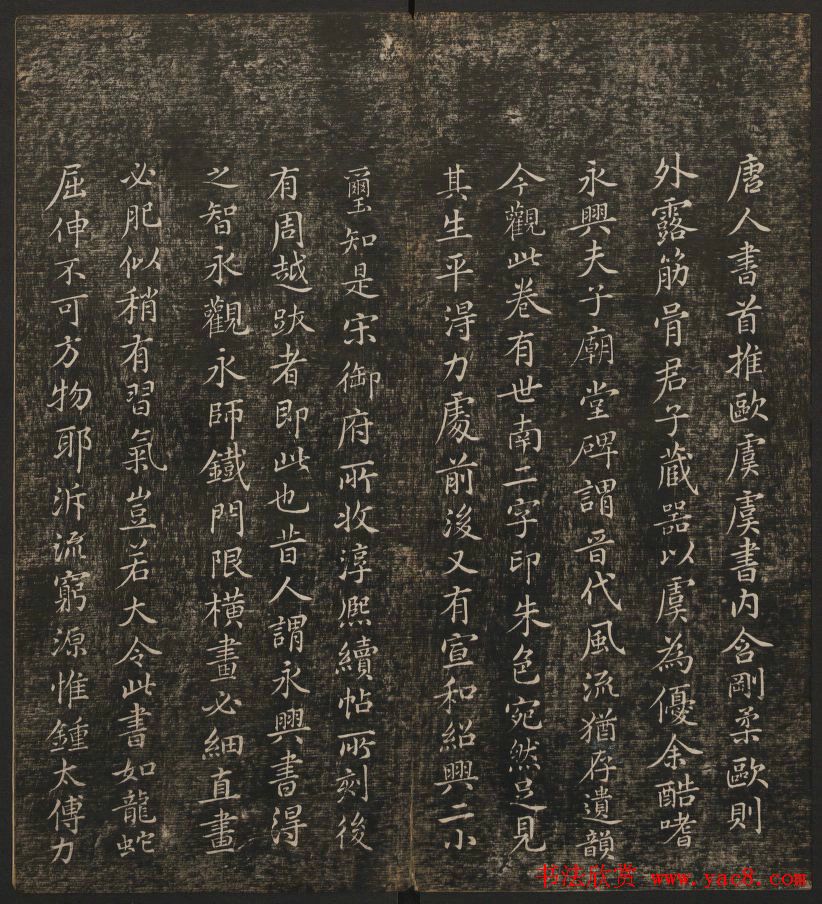 唐人書首推歐虞虞書内含剛柔歐則
外露筋骨君子藏器以虞為優余酷嗜
永興夫子廟堂碑謂晉代風流猶存遺韻
今觀此卷有世南二字印朱色宛然足見
其生平得力處前後又有宣和紹興二小
璽知是宋御府所收淳熙續帖所刻後
有周越跋者即此也昔人謂永興書得
之智永觀永師鐵門限橫畫必細直畫
必肥似稍有習氣豈若大令此書如龍蛇
屈伸不可方物耶泝流窮源惟鍾太傅力
书法欣赏 www.yac8.com